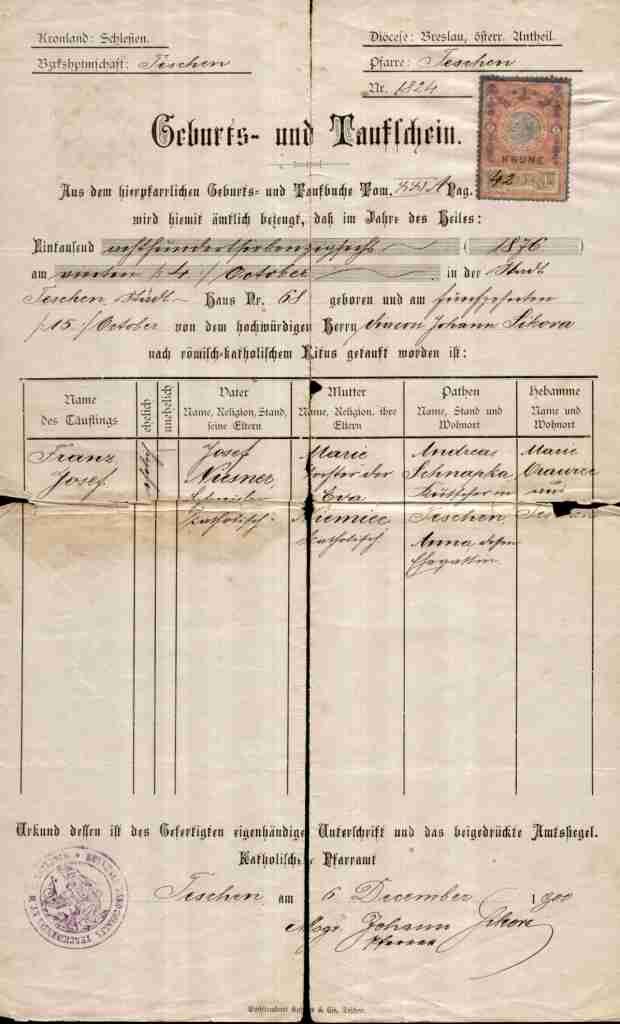 Kronland: Schlesien.
Diöcese: Breslau, österr. Antheil.
Bezirkshptmschaft: Teschen
Pfarre: Teschen
Nr. 1824
Geburts- und Taufschein.
KRONE
Aus dem hierpfarrlichen Geburts- und Taufbuche Tom. Pag. 42
wird hiemit ämtlich bezeugt, daß im Jahre des Heiles:
Eintausend achthundertsiebenzigsechs (1876)
am vierten /:4:/ October in der Stadt
Teschen, Stadt Haus Nr. 68 geboren und am fünfzehnten
/:15:/ October von dem hochwürdigen Herrn Johann Sikora
nach römisch-katholischem Ritus getauft worden ist:
Name des Täuflings
ehelich
unehelich
Vater
Name, Religion, Stand, seine Eltern
Mutter
Name, Religion, ihre Eltern
Pathen
Name, Stand und Wohnort
Hebamme
Name und Wohnort
Franz
Josef
ehelich
Josef
Niesner
Katholisch.
Marie
Tochter der
Eva
Niemiec
Katholisch.
Andreas
Schnapka
Kutscher in
Teschen,
Anna dessen
Ehegattin
Marie
aus
Teschen
Urkund dessen ist des Gefertigten eigenhändige Unterschrift und das beigedrückte Amtssiegel.
Katholisches Pfarramt
Teschen am 6 December 1900
Johann Sikora
Pfarrer